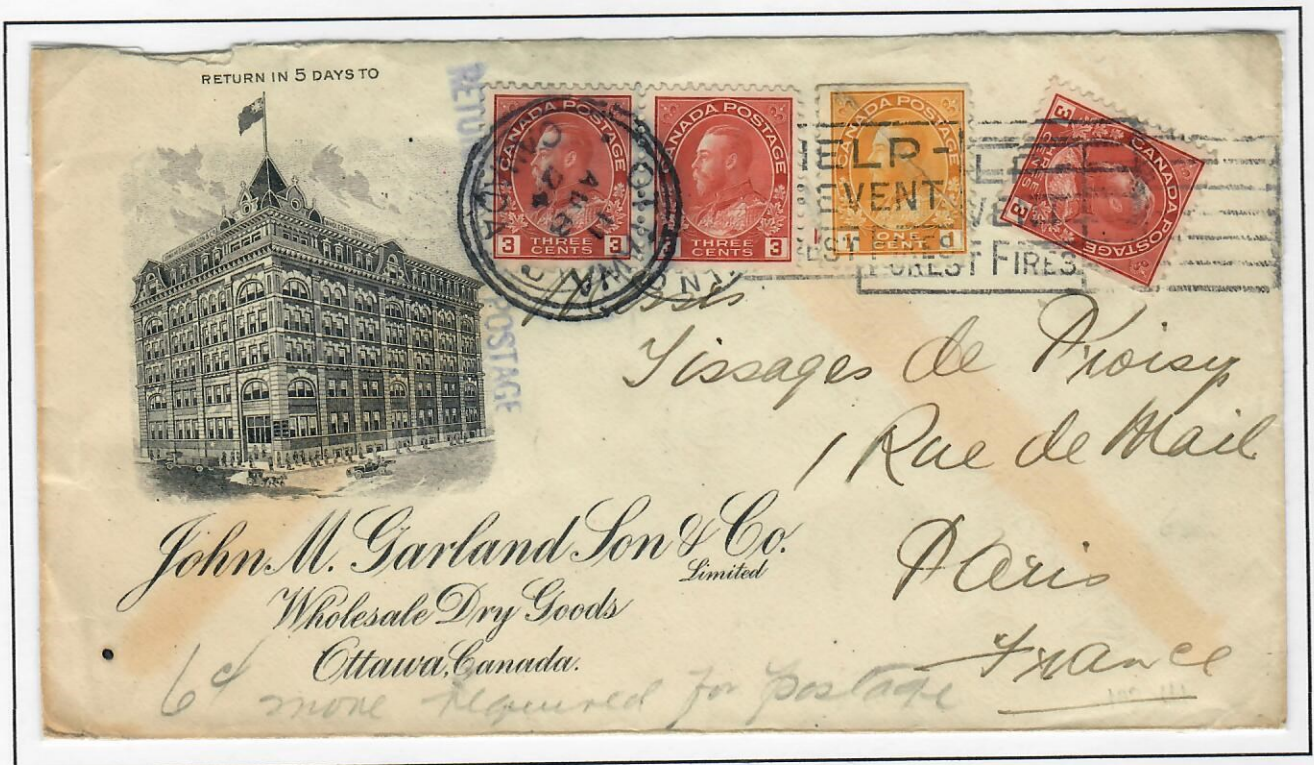 RETURN IN 5 DAYS TO
RETURN
POSTAGE
CANADA POSTAGE
3 THREE CENTS 3
CANADA POSTAGE
THREE CENTS 3
CANADA POSTAGE
1 ONE CENT 1
CANADA POSTAGE
3 THREE 3
OTTAWA
CANADA
11
24
HELP
VENT
FOREST FIRES
Tissages de
1 Rue de Mail
Paris
France
John M. Garland Son & Co.
Limited
Wholesale Dry Goods
Ottawa, Canada.
6¢ more required for postage